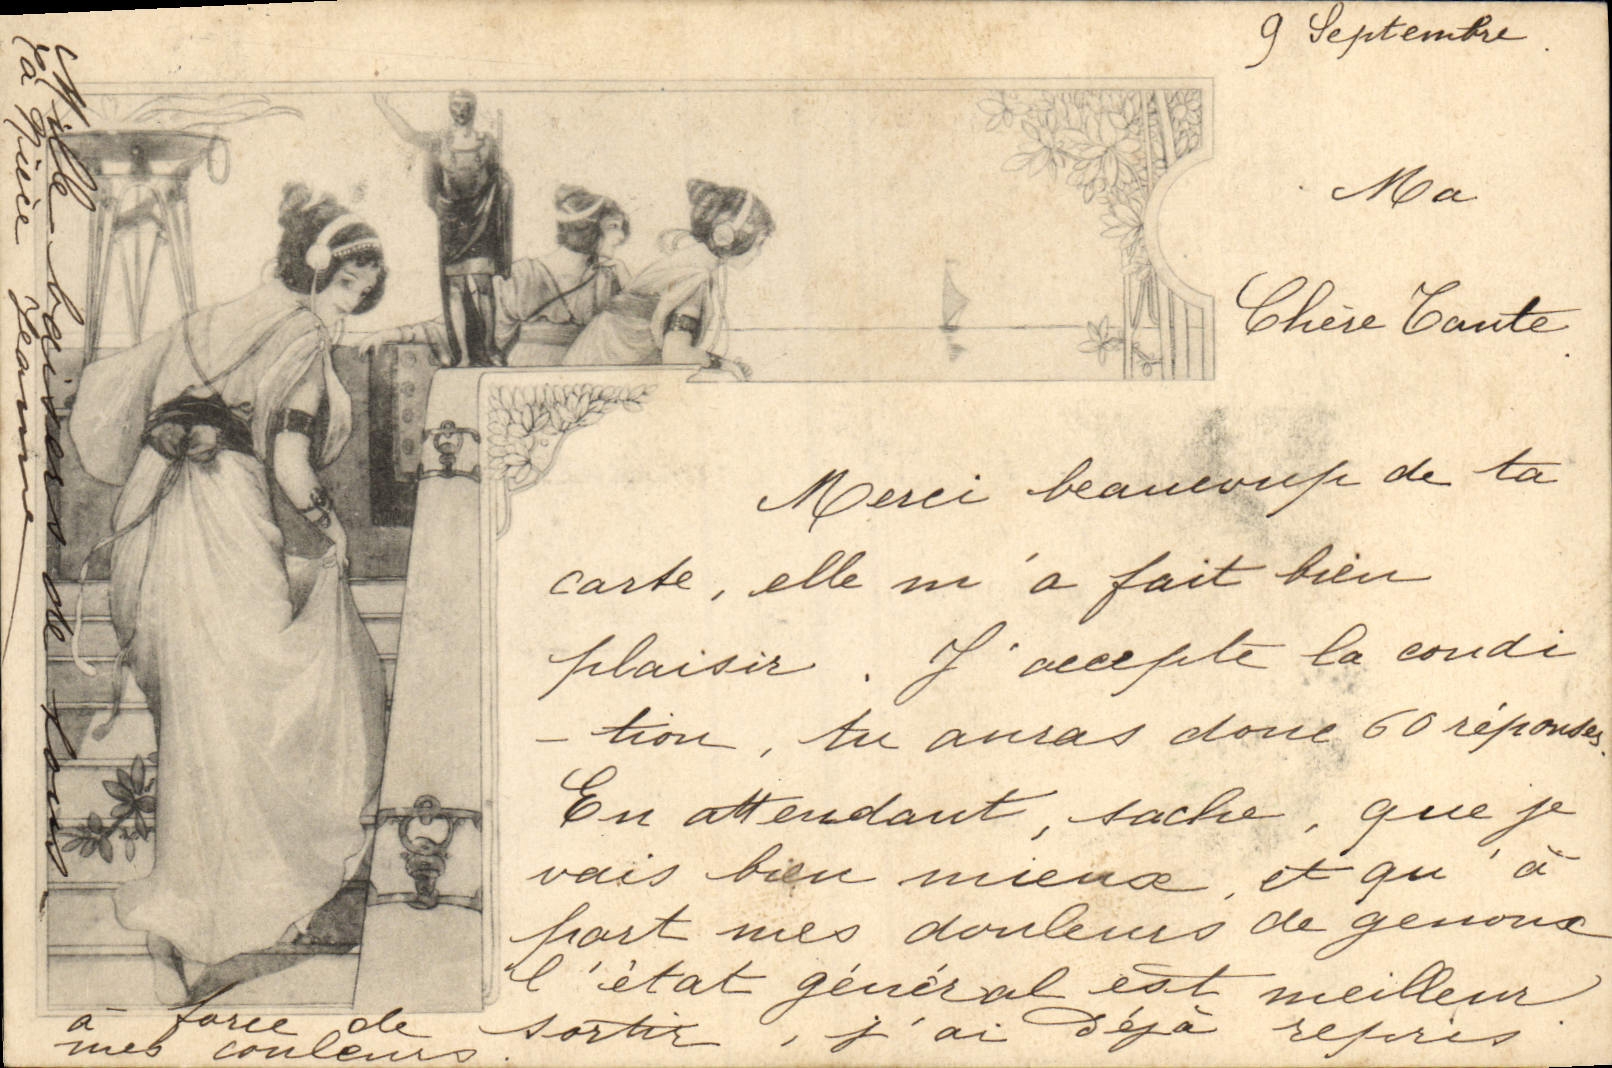 9 Septembre.
Ma
Chère Tante.
Merci beaucoup de ta
carte, elle m'a fait bien
plaisir. J'accepte la condi
-tion, tu auras donc 60 réponses.
En attendant, sache, que je
vais bien mieux, et qu'à
part mes douleurs de genoux
l'état général est meilleur
à force de sortir, j'ai déjà repris
mes couleurs.
Mille baisers de tous.
Ta nièce Jeanne